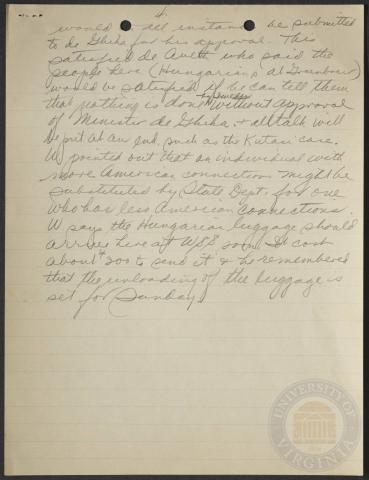 4.
would in all instances be submitted
to de Ghika for his approval. This
satisfied de who said the
people here (Hungarians at Greenbrier)
would be satisfied if he can tell them
that nothing is done by without approval
of Minister de Ghika & all talk will
be put at an end, such as the Kutasi case.
W pointed out that an individual with
more American connections might be
substituted by State Dept. for one
who has less American connections.
W says the Hungarian luggage should
arrive here at WSS soon. It cost
about $200 to send it & he remembered
that the unloading of the luggage is
set for Sunday
UNIVERSITY OF VIRGINIA